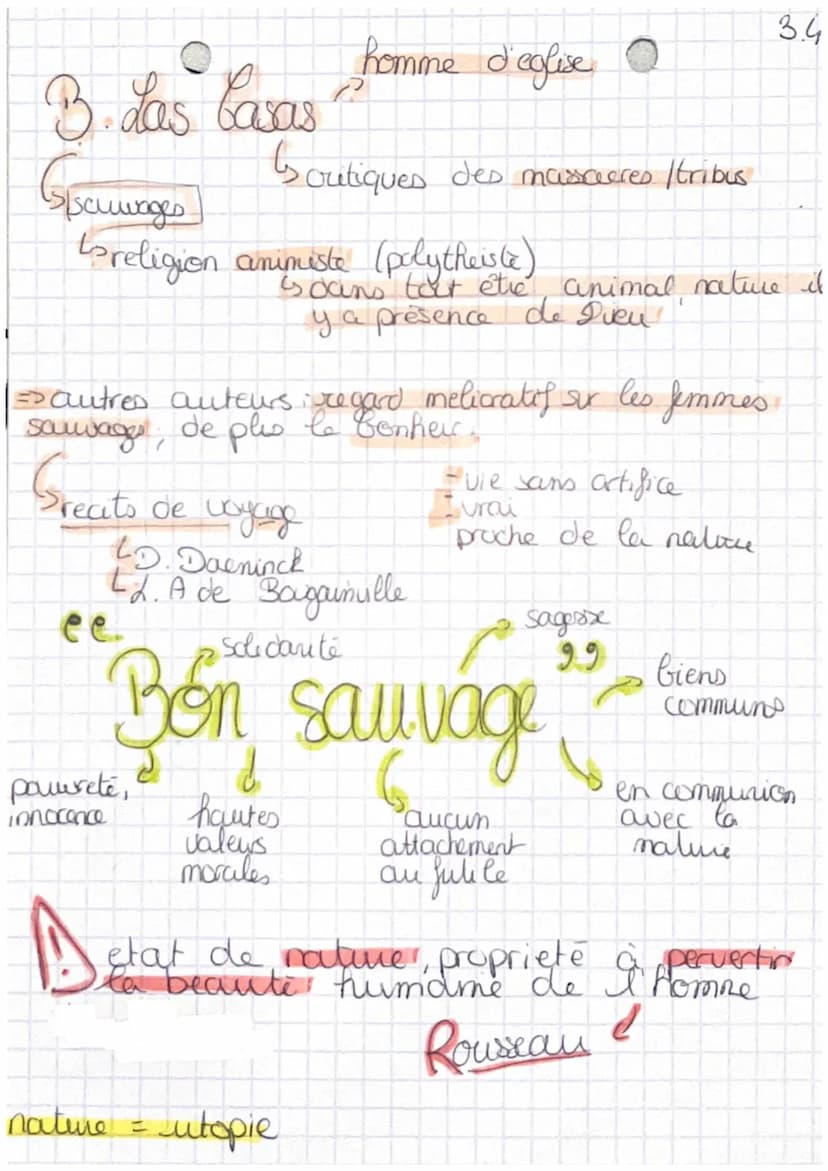 3.4
homme d'eglise
B. Las Casas
↳ critiques des massacres / tribus
↳ sauvages
↳ religion animiste (polytheiste)
↳ dans tout être animal, nature il
y a présence de Dieu
=> autres auteurs : regard melioratif sur les femmes
sauvages, de plus le bonheur.
- vie sans artifice
↳ recits de voyage
- vrai
proche de la nature
↳ D. Daeninck
↳ L. A de Bougainville
sagesse
solidarité
"Bon sauvage"
biens
communs
pauvreté,
innocence
hautes
valeurs
morales
aucun
attachement
au futile
en communion
avec la
nature
! etat de nature, proprieté à pervertir
la beauté humaine de l'Homme
Rousseau
nature = utopie